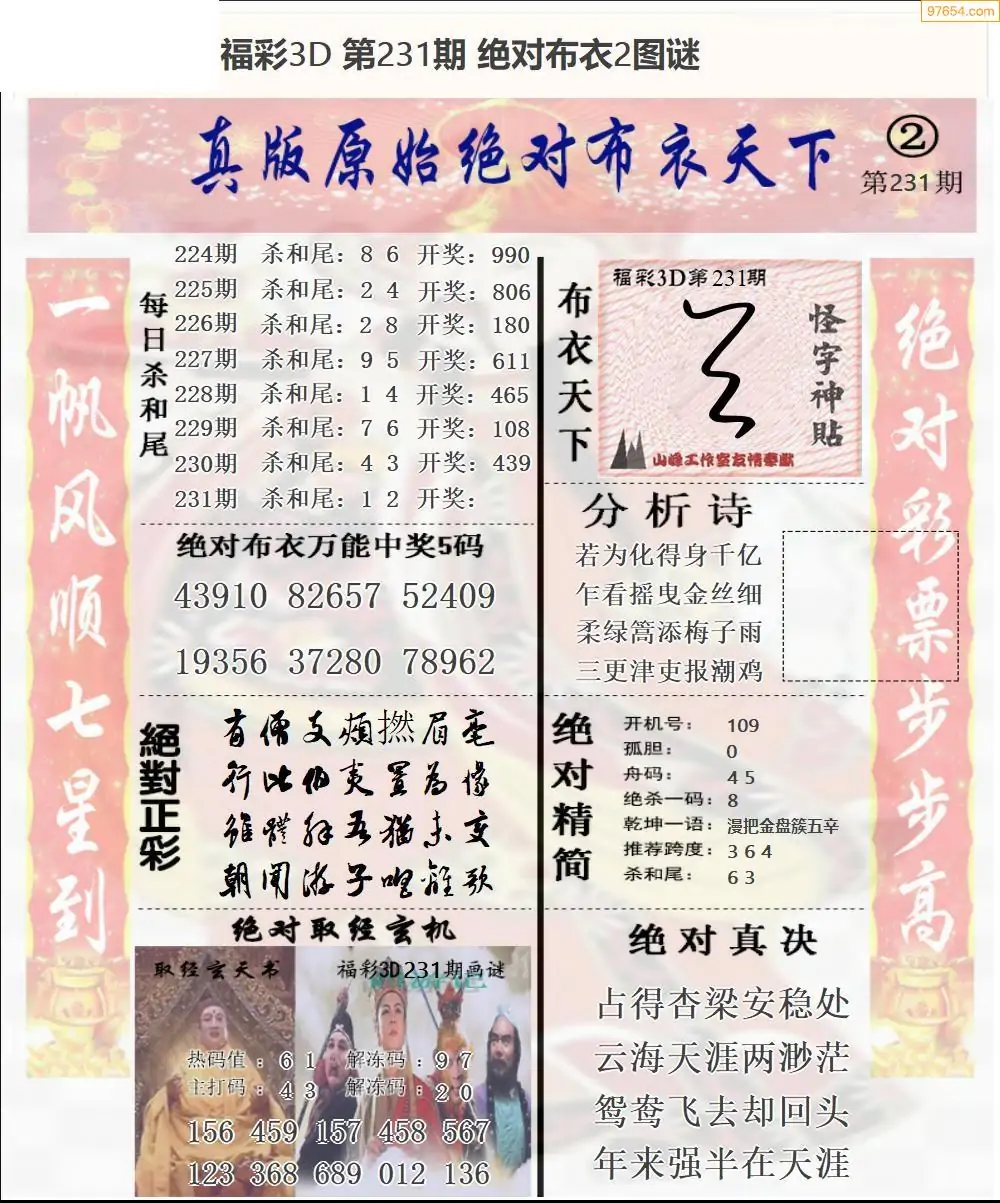 97654.com
福彩3D 第231期 绝对布衣2图谜
真版原始绝对布衣天下
②
第231期
一帆风顺七星到
每日杀和尾
224期 杀和尾：8 6 开奖：990
225期 杀和尾：2 4 开奖：806
226期 杀和尾：2 8 开奖：180
227期 杀和尾：9 5 开奖：611
228期 杀和尾：1 4 开奖：465
229期 杀和尾：7 6 开奖：108
230期 杀和尾：4 3 开奖：439
231期 杀和尾：1 2 开奖：
绝对布衣万能中奖5码
43910 82657 52409
19356 37280 78962
絕對正彩
有僧支頰撚眉毫
行比伯夷置為像
雖體解吾猶未变
朝闻游子唱離歌
绝对取经玄机
取经玄天书
福彩3D231期画谜
热码值：6 1 解冻码：9 7
主打码：4 3 解冻码：2 0
156 459 157 458 567
123 368 689 012 136
布衣天下
福彩3D第231期
怪字神贴
山峰工作室友情奉献
分析诗
若为化得身千亿
乍看摇曳金丝细
柔绿篙添梅子雨
三更津吏报潮鸡
绝对精简
开机号：109
孤胆：0
舟码：4 5
绝杀一码：8
乾坤一语：漫把金盘簇五辛
推荐跨度：3 6 4
杀和尾：6 3
绝对真决
占得杏梁安稳处
云海天涯两渺茫
鸳鸯飞去却回头
年来强半在天涯
绝对彩票步步高